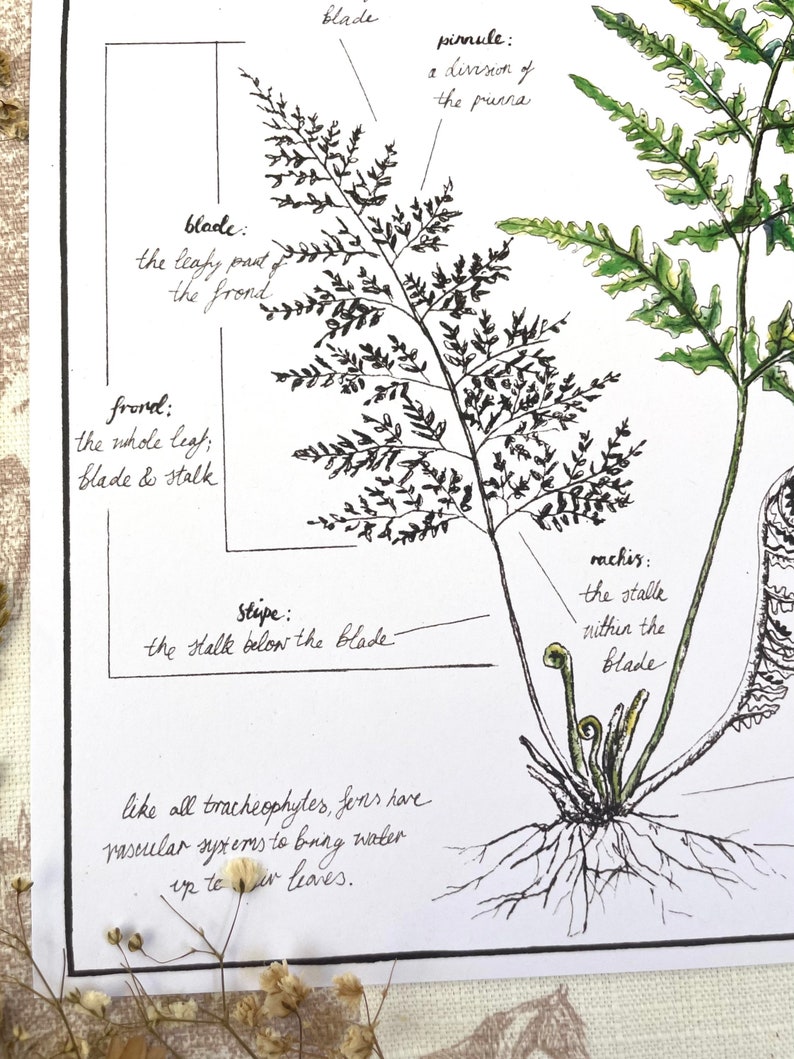 blade
pinnule:
a division of
the pinna
blade:
the leafy part of
the frond
frond:
the whole leaf;
blade & stalk
rachis:
the stalk
within the
blade
stipe:
the stalk below the blade
like all tracheophytes, ferns have
vascular systems to bring water
up to leaves.